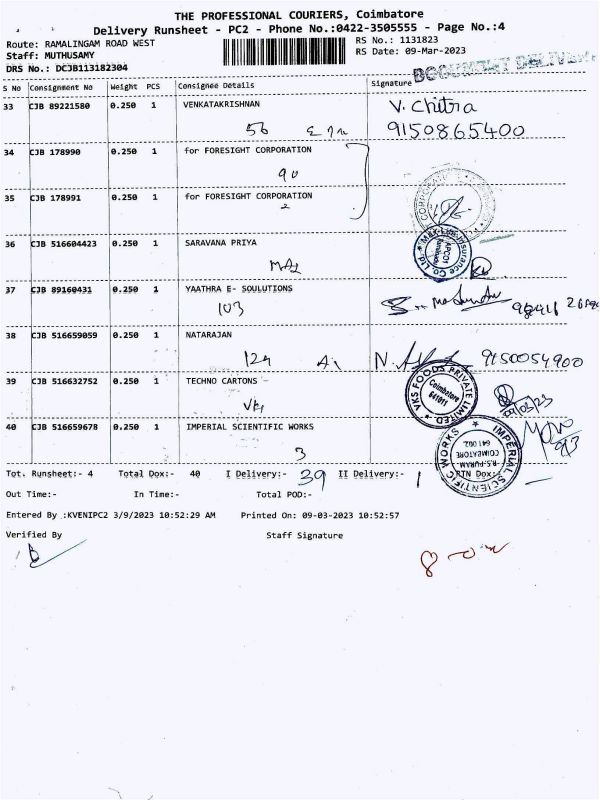 THE PROFESSIONAL COURIERS, Coimbatore
Delivery Runsheet - PC2 - Phone No.:0422-3505555 - Page No.:4
Route: RAMALINGAM ROAD WEST RS No.: 1131823
Staff: MUTHUSAMY RS Date: 09-Mar-2023
DRS No.: DCJB113182304 DOCUMENT
S No Consignment No Weight PCS Consignee Details Signature
33 CJB 89221580 0.250 1 VENKATAKRISHNAN V. Chitra
56 9150865400
34 CJB 178990 0.250 1 for FORESIGHT CORPORATION
90
35 CJB 178991 0.250 1 for FORESIGHT CORPORATION
2
36 CJB 516604423 0.250 1 SARAVANA PRIYA
Max Life Insurance Co Ltd.
37 CJB 89160431 0.250 1 YAATHRA E- SOULUTIONS
103
38 CJB 516659059 0.250 1 NATARAJAN
9150054900
39 CJB 516632752 0.250 1 TECHNO CARTONS
VKS FOODS PRIVATE LIMITED
Coimbatore
641011
40 CJB 516659678 0.250 1 IMPERIAL SCIENTIFIC WORKS
3
IMPERIAL SCIENTIFIC WORKS
R.S.PURAM
COIMBATORE
641 002
Tot. Runsheet:- 4 Total Dox:- 40 I Delivery:- 39 II Delivery:- 1 RTN Dox:-
Out Time:- In Time:- Total POD:-
Entered By :KVENIPC2 3/9/2023 10:52:29 AM Printed On: 09-03-2023 10:52:57
Verified By Staff Signature